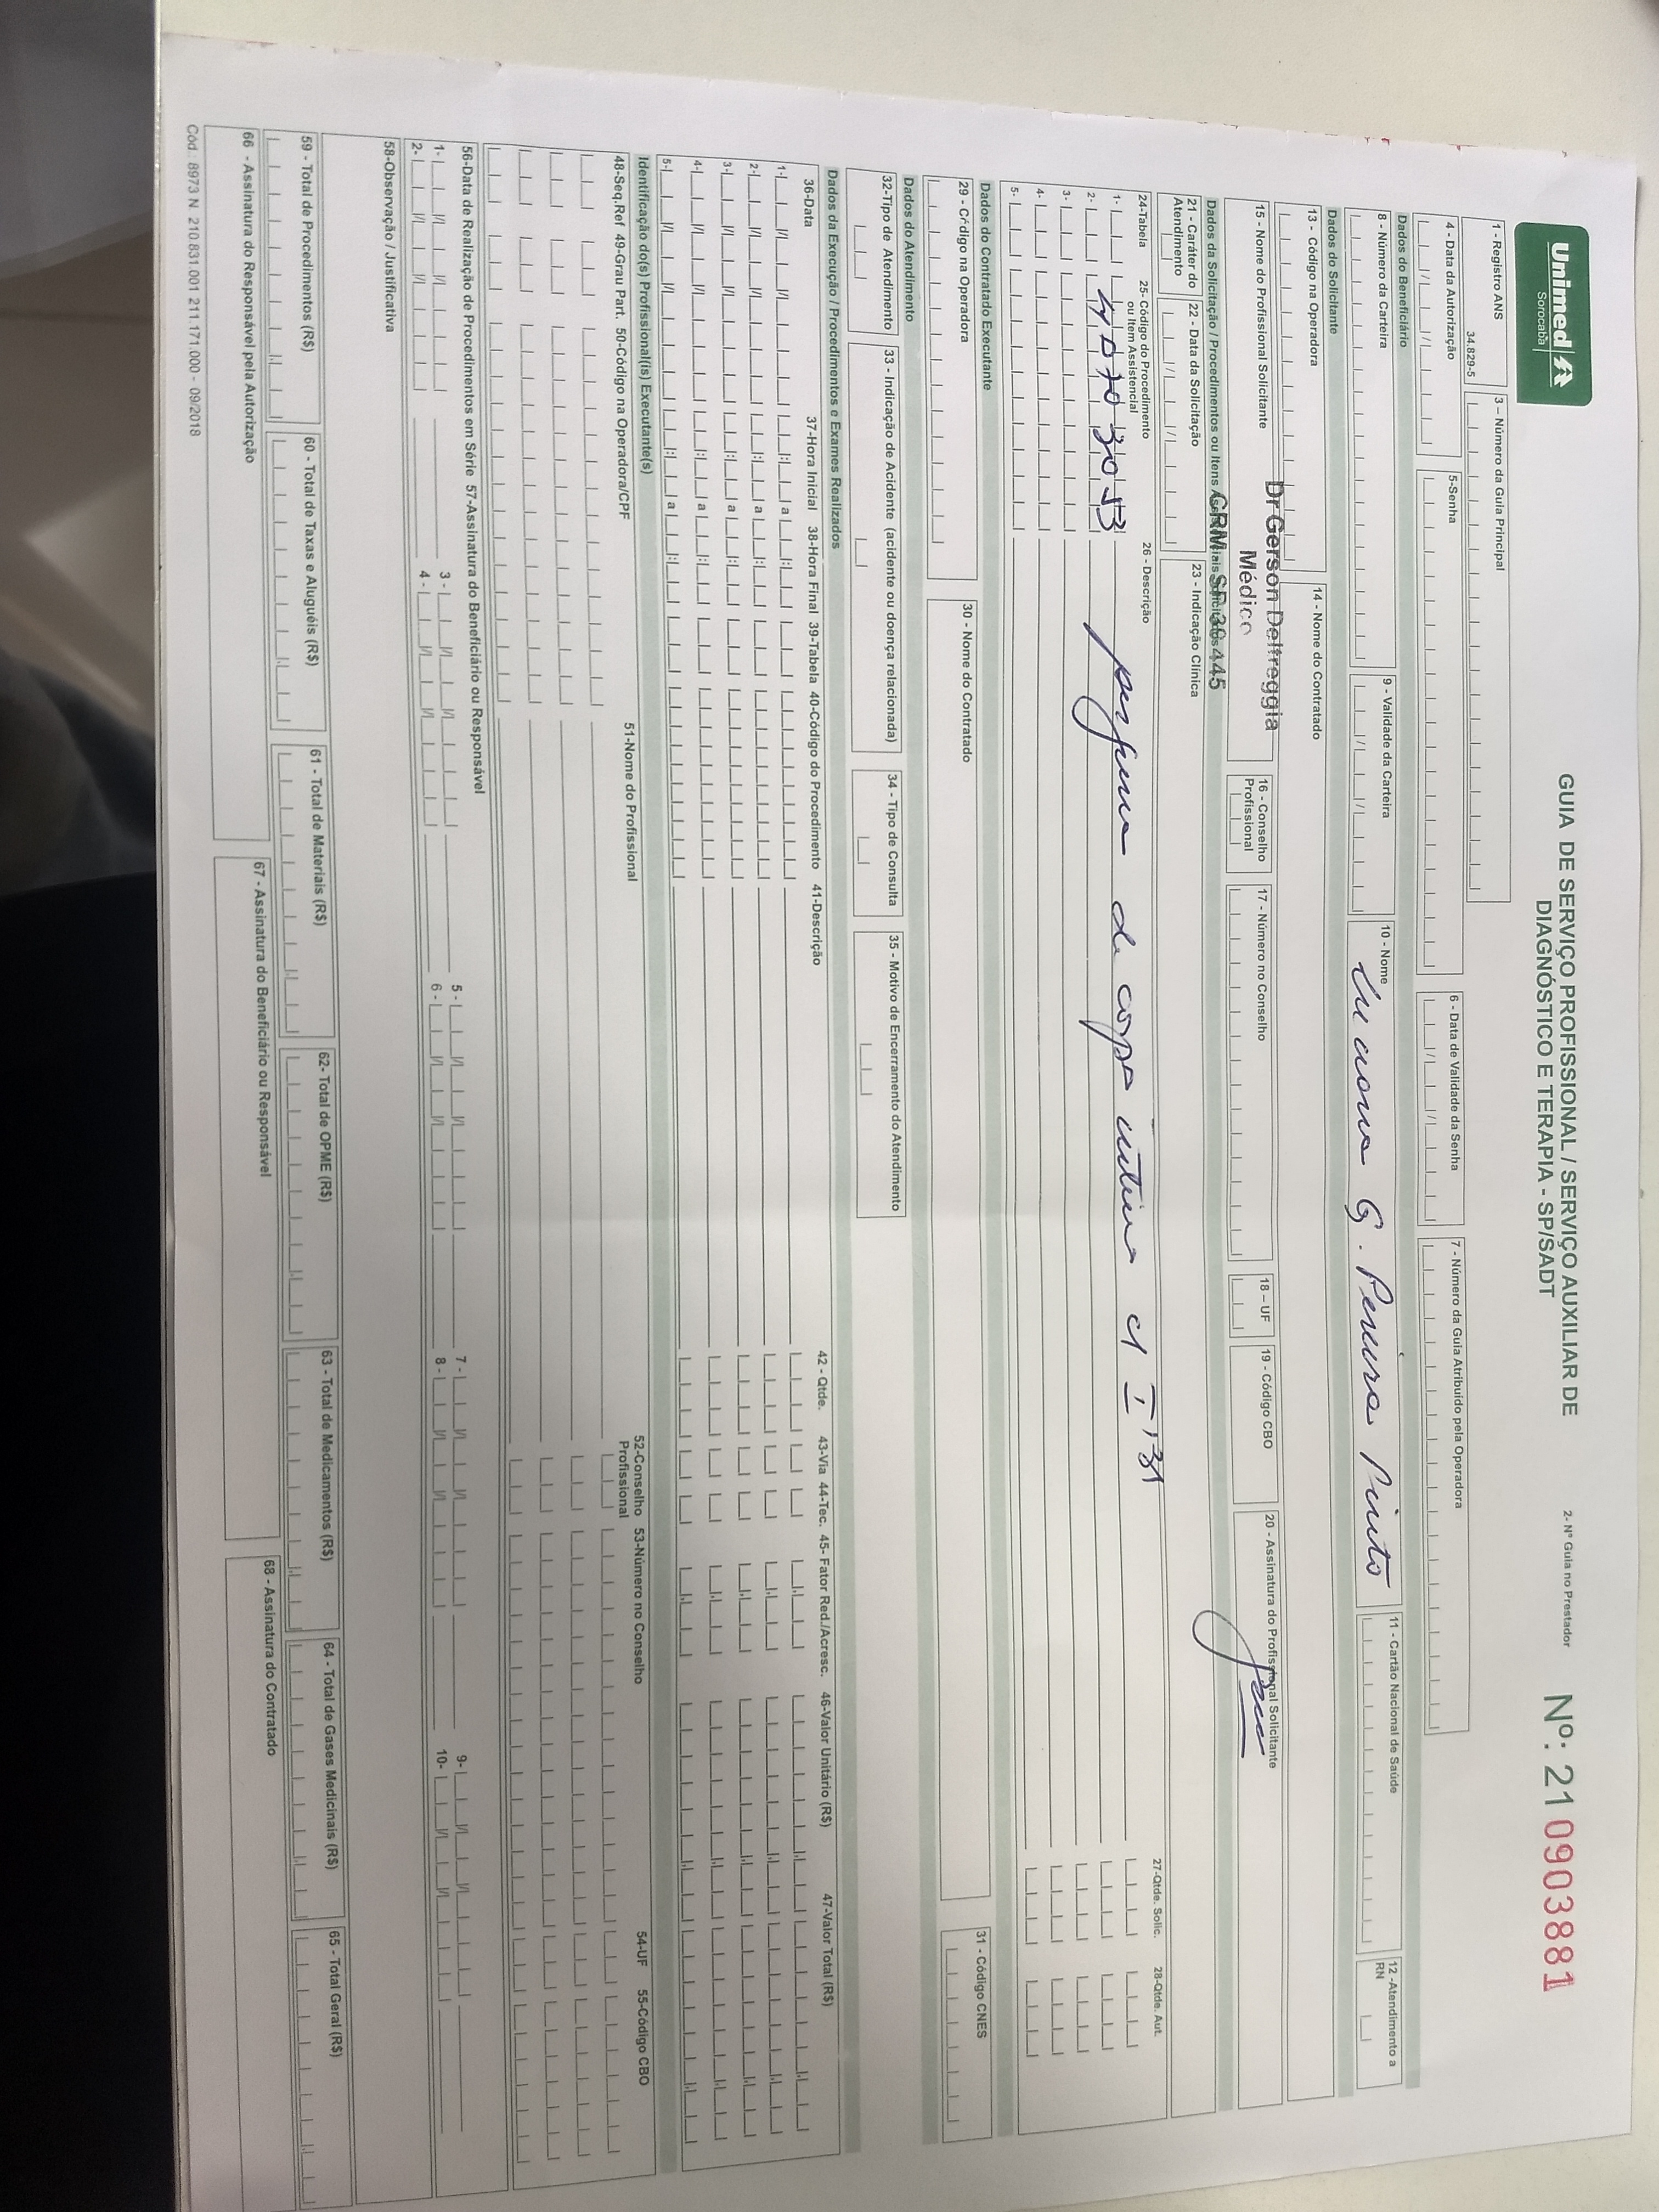 Unimed
Sorocaba
GUIA DE SERVIÇO PROFISSIONAL / SERVIÇO AUXILIAR DE
DIAGNÓSTICO E TERAPIA - SP/SADT
2- Nº Guia no Prestador
Nº: 21 0903881
1 - Registro ANS
34.829-5
3 – Número da Guia Principal
4 - Data da Autorização
5-Senha
6 - Data de Validade da Senha
7 - Número da Guia Atribuído pela Operadora
Dados do Beneficiário
8 - Número da Carteira
9 - Validade da Carteira
10 - Nome
G. Pereira Pinto
11 - Cartão Nacional de Saúde
12 -Atendimento a
RN
Dados do Solicitante
13 - Código na Operadora
14 - Nome do Contratado
15 - Nome do Profissional Solicitante
Dr Gerson Delfreggia
Médico
16 - Conselho
Profissional
17 - Número no Conselho
18 – UF
19 - Código CBO
20 - Assinatura do Profissional Solicitante
Dados da Solicitação / Procedimentos ou Itens Assistenciais Solicitados
CRM - SP 39.445
21 - Caráter do
Atendimento
22 - Data da Solicitação
23 - Indicação Clínica
24-Tabela
25- Código do Procedimento
ou Item Assistencial
26 - Descrição
27-Qtde. Solic.
28-Qtde. Aut.
1-
de corpo inteiro c/ I 131
2-
3-
4-
5-
Dados do Contratado Executante
29 - Código na Operadora
30 - Nome do Contratado
31 - Código CNES
Dados do Atendimento
32-Tipo de Atendimento
33 - Indicação de Acidente (acidente ou doença relacionada)
34 - Tipo de Consulta
35 - Motivo de Encerramento do Atendimento
Dados da Execução / Procedimentos e Exames Realizados
36-Data
37-Hora Inicial
38-Hora Final
39-Tabela
40-Código do Procedimento
41-Descrição
42 - Qtde.
43-Via
44-Tec.
45- Fator Red./Acresc.
46-Valor Unitário (R$)
47-Valor Total (R$)
1-
2-
3-
4-
5-
Identificação do(s) Profissional(is) Executante(s)
48-Seq.Ref
49-Grau Part.
50-Código na Operadora/CPF
51-Nome do Profissional
52-Conselho
Profissional
53-Número no Conselho
54-UF
55-Código CBO
56-Data de Realização de Procedimentos em Série
57-Assinatura do Beneficiário ou Responsável
1-
3 -
5 -
7 -
9-
2-
4 -
6 -
8 -
10-
58-Observação / Justificativa
59 - Total de Procedimentos (R$)
60 - Total de Taxas e Aluguéis (R$)
61 - Total de Materiais (R$)
62- Total de OPME (R$)
63 - Total de Medicamentos (R$)
64 - Total de Gases Medicinais (R$)
65 - Total Geral (R$)
66 - Assinatura do Responsável pela Autorização
67 - Assinatura do Beneficiário ou Responsável
68 - Assinatura do Contratado
Cód.: 8973 N 210.831.001 211.171.000 - 09/2018